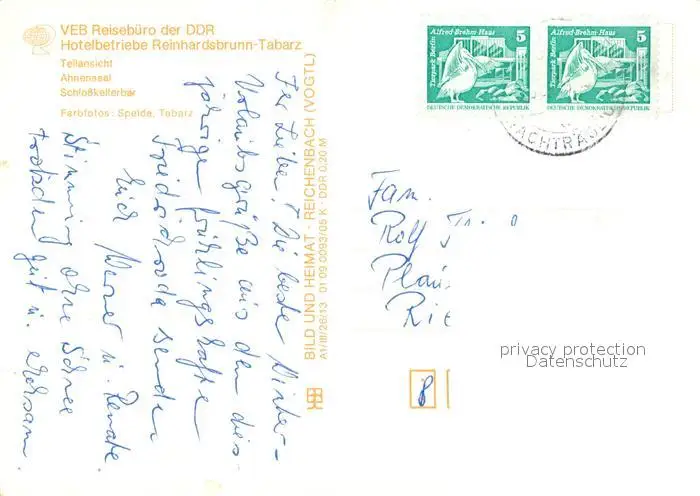 VEB Reisebüro der DDR
Hotelbetriebe Reinhardsbrunn-Tabarz
Teilansicht
Ahnensaal
Schloßkellerbar
Farbfotos: Speide, Tabarz
Ihr Lieben! Die besten Winter-
urlaubsgrüße aus dem dies-
jährigen frühlingshaften
Friedrichroda senden
Euch Werner u. Renate.
Stimmung ohne Schnee
trotzdem gut u. erholsam.
BILD UND HEIMAT · REICHENBACH (VOGTL)
A1/III/26/13 01 09 0093/05 K · DDR 0,20 M
Tierpark Berlin
Alfred-Brehm-Haus
5
DEUTSCHE DEMOKRATISCHE REPUBLIK
Tierpark Berlin
Alfred-Brehm-Haus
5
DEUTSCHE DEMOKRATISCHE REPUBLIK
Fam.
Rolf
Plau
Rie
privacy protection
Datenschutz
8